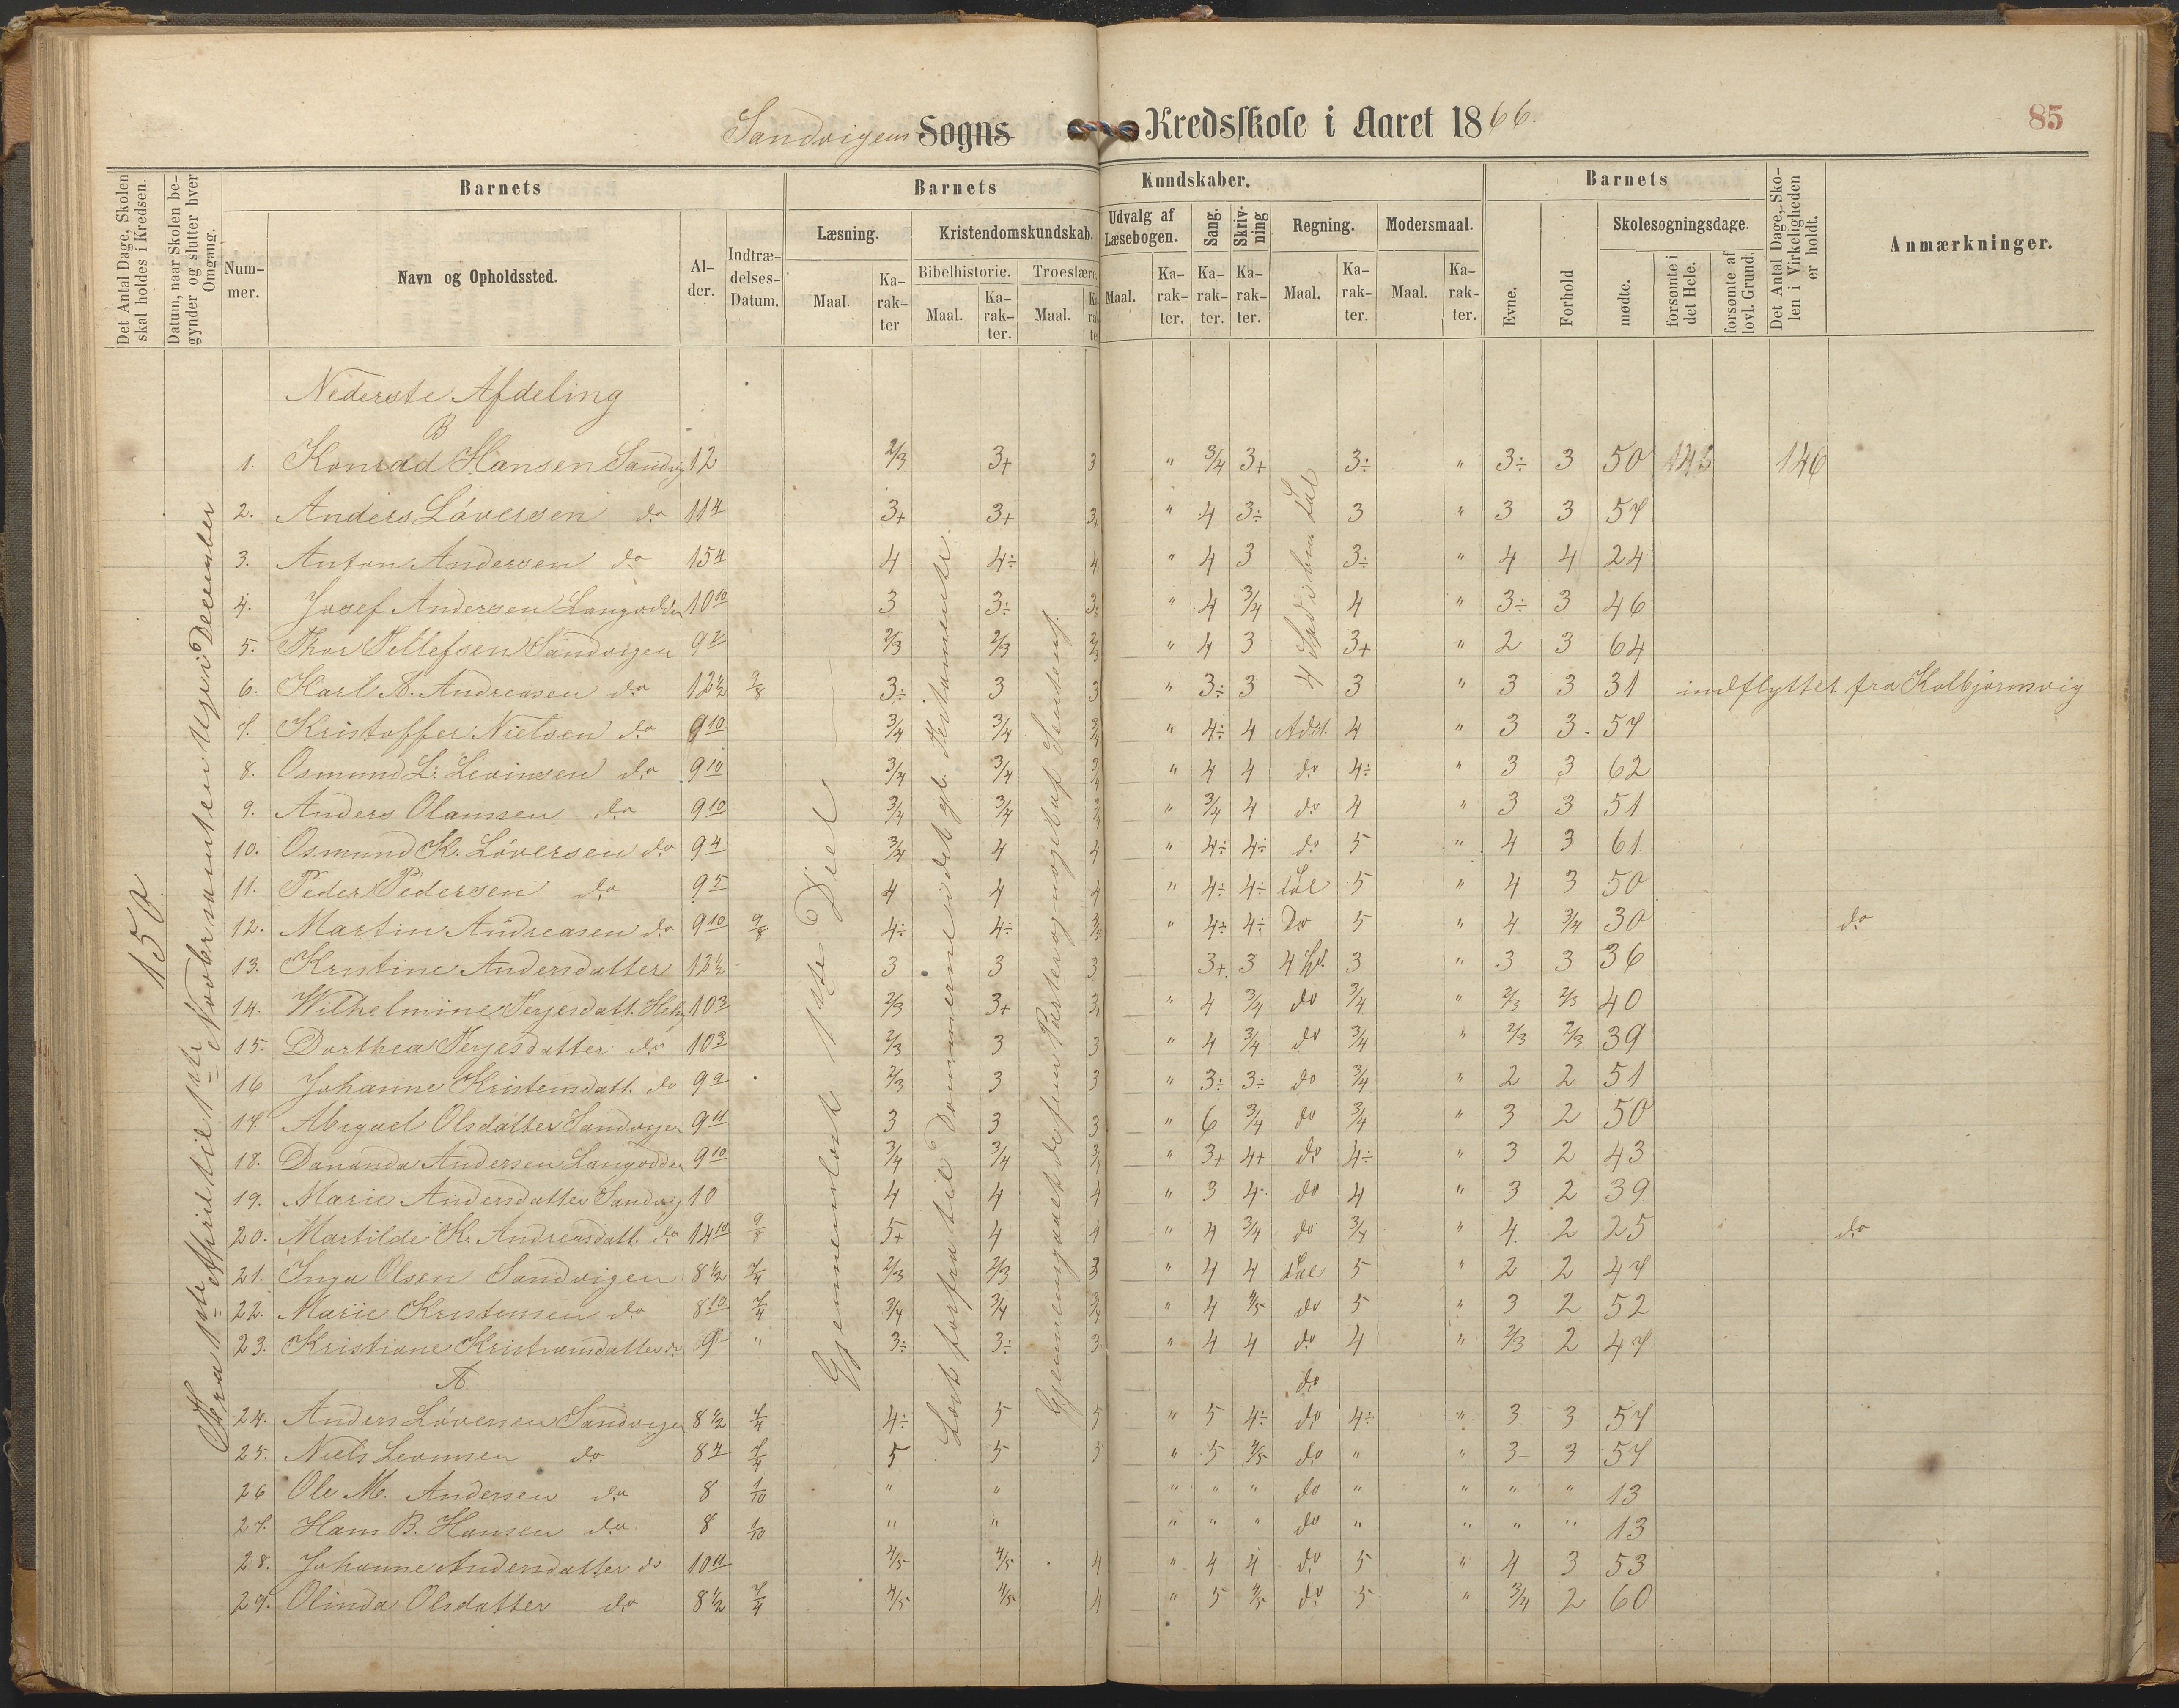 Sandvigens Sogns Kredsskole i Aaret 1866.
85
Det Antal Dage, Skolen skal holdes i Kredsen.
Datum, naar Skolen begynder og slutter hver Omgang.
Barnets
Nummer.
Navn og Opholdssted.
Alder.
Indtrædelses-Datum.
Barnets Kundskaber.
Læsning.
Maal.
Karakter
Kristendomskundskab.
Bibelhistorie.
Maal.
Karakter.
Troeslære.
Maal.
Karakter
Udvalg af Læsebogen.
Maal.
Karakter.
Sang.
Karakter.
Skrivning
Karakter.
Regning.
Maal.
Karakter.
Modersmaal.
Maal.
Karakter.
Barnets
Evne.
Forhold
Skolesøgningsdage.
mødte.
forsømte i det Hele.
forsømte af lovl. Grund.
Det Antal Dage, Skolen i Virkeligheden er holdt.
Anmærkninger.
Nederste Afdeling
B
1. Konrad Hansen Sandvig 12 2/3 3+ 3 " 3/4 3+ 3÷ " 3÷ 3 50 146
2. Anders Løversen do 11 4 3+ 3+ 3+ " 4 3÷ 3 " 3 3 57
3. Anton Andersen do 15 4 4 4÷ 4 " 4 3 3÷ " 4 4 24
4. Josef Andersen Langodden 10 10 3 3÷ 3÷ " 4 3/4 4 " 3÷ 3 46
5. Thor Tellefsen Sandvigen 9 2 2/3 2/3 2/3 " 4 3 3+ " 2 3 64
6. Karl A. Andreasen do 12 1/2 9/8 3÷ 3 3 " 3÷ 3 3 " 3 3 31 indflyttet fra Kolbjørnsvig
7. Kristoffer Nielsen do 9 10 3/4 3/4 3/4 " 4÷ 4 Add. 4 " 3 3 57
8. Osmund L. Levinsen do 9 10 3/4 3/4 3/4 " 4 4 do 4÷ " 3 3 62
9. Anders Olanssen do 9 10 3/4 3/4 3/4 " 3/4 4 do 4 " 3 3 51
10. Osmund K. Løversen do 9 4 3/4 4 4 " 4÷ 4÷ do 5 " 4 3 61
11. Peder Pedersen do 9 5 4 4 4 " 4÷ 4÷ Tal 5 " 4 3 50
12. Martin Andreasen do 9 10 9/8 4÷ 4÷ " 4÷ 4÷ Do 5 " 4 3/4 30 do
13. Kristine Andersdatter 12 1/2 3 3 3 3+ 3 3 " 3 3 36
14. Wilhelmine Terjesdatt. 10 3 2/3 3+ " 4 3/4 do 3/4 " 2/3 2/3 40
15. Dorthea Terjesdatter do 10 3 2/3 3 3 " 4 3/4 do 3/4 " 2/3 2/3 39
16 Johanne Kristensdatt. do 9 2 2/3 3 3 " 3÷ 3÷ do 3/4 " 2 2 51
17. Abigael Olsdatter Sandvigen 9 11 3 3 3 " 6 3/4 do 3/4 " 3 2 50
18. Dananda Andersen Langodden 9 10 3/4 3/4 3/4 " 3+ 4+ do 4÷ " 3 2 43
19. Marie Andersdatter Sandvig 10 4 4 4 " 3 4 do 4 " 3 2 39
20. Martilde K. Andreasdatt. do 14 10 9/8 5+ 4 4 " 4 3/4 do 3/4 " 4 2 25 do
21. Inga Olsen Sandvigen 8 1/2 7/4 2/3 2/3 3 " 4 4 Tal 5 " 2 2 47
22. Marie Kristensen do 8 10 7/4 3/4 3/4 3/4 " 4 4/5 do 5 " 3 2 52
23. Kristiane Kristiansdatter do 9 " 3÷ 3÷ 3 " 4 4 do 4 " 2/3 2 47
A.
do
24. Anders Løversen Sandvigen 8 1/2 7/4 4÷ 5 5 " 5 4÷ do 4÷ " 3 3 57
25. Niels Levinsen do 8 4 7/4 5 5 5 " 5 4/5 do " " 3 3 57
26 Ole M. Andersen do 8 1/10 " " " " " do " " " " 13
27. Hans B. Hansen do 8 1/10 " " " " " do " " " " 13
28. Johanne Andersdatter do 10 11 4/5 4/5 4 " 4 4 do 5 " 4 3 53
29. Olinda Olsdatter do 8 1/2 7/4 4/5 4/5 4 " 5 4/5 do 5 " 3/4 2 60
Fra 1ste April til 1ste Novbr samt en Uge i December
Gjennemlæst 1ste Deel
Lært forfra til Dommerne i det gl. Testamente.
4 Spd. i ben. Tal